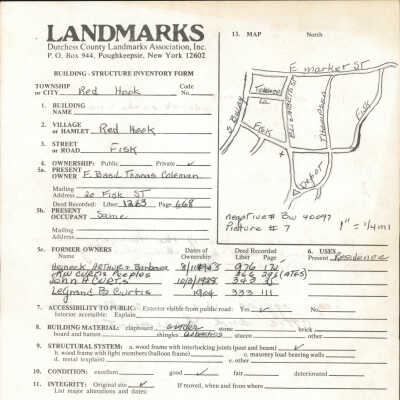 LANDMARKS
Dutchess County Landmarks Association, Inc.
P. O. Box 944, Poughkeepsie, New York 12602
BUILDING - STRUCTURE INVENTORY FORM
TOWNSHIP or CITY Red Hook Code No.
1. BUILDING NAME
2. VILLAGE or HAMLET Red Hook
3. STREET or ROAD FISK
4. OWNERSHIP: Public Private ✓
5a. PRESENT OWNER F. Basil Thomas Coleman
Mailing Address 20 Fisk ST
Deed Recorded: Liber 1263 Page 668
5b. PRESENT OCCUPANT Same
Mailing Address
5c. FORMER OWNERS Dates of Ownership Deed Recorded Liber Page
Arthur & Barbara 976
R.W. Curtis Peoples 366
John H Curtis 343
B Curtis 1904 333 111
6. USES: Present Residence
7. ACCESSIBILITY TO PUBLIC: Exterior visible from public road: Yes ✓ No.
Interior accessible: Explain
8. BUILDING MATERIAL: clapboard cinder stone brick
board and batten shingles stucco other
9. STRUCTURAL SYSTEM: a. wood frame with interlocking joints (post and beam) ✓
b. wood frame with light members (balloon frame) c. masonry load bearing walls
d. metal (explain) e. other
10. CONDITION: excellent good ✓ fair deteriorated
11. INTEGRITY: Original site ✓ If moved, when and from where
List major alterations and dates:
13. MAP North
E. Market ST
S. Bdwy
Fisk
Fisk
Depot
negative # BW 40097
Picture # 7
1" = 1/4 mi